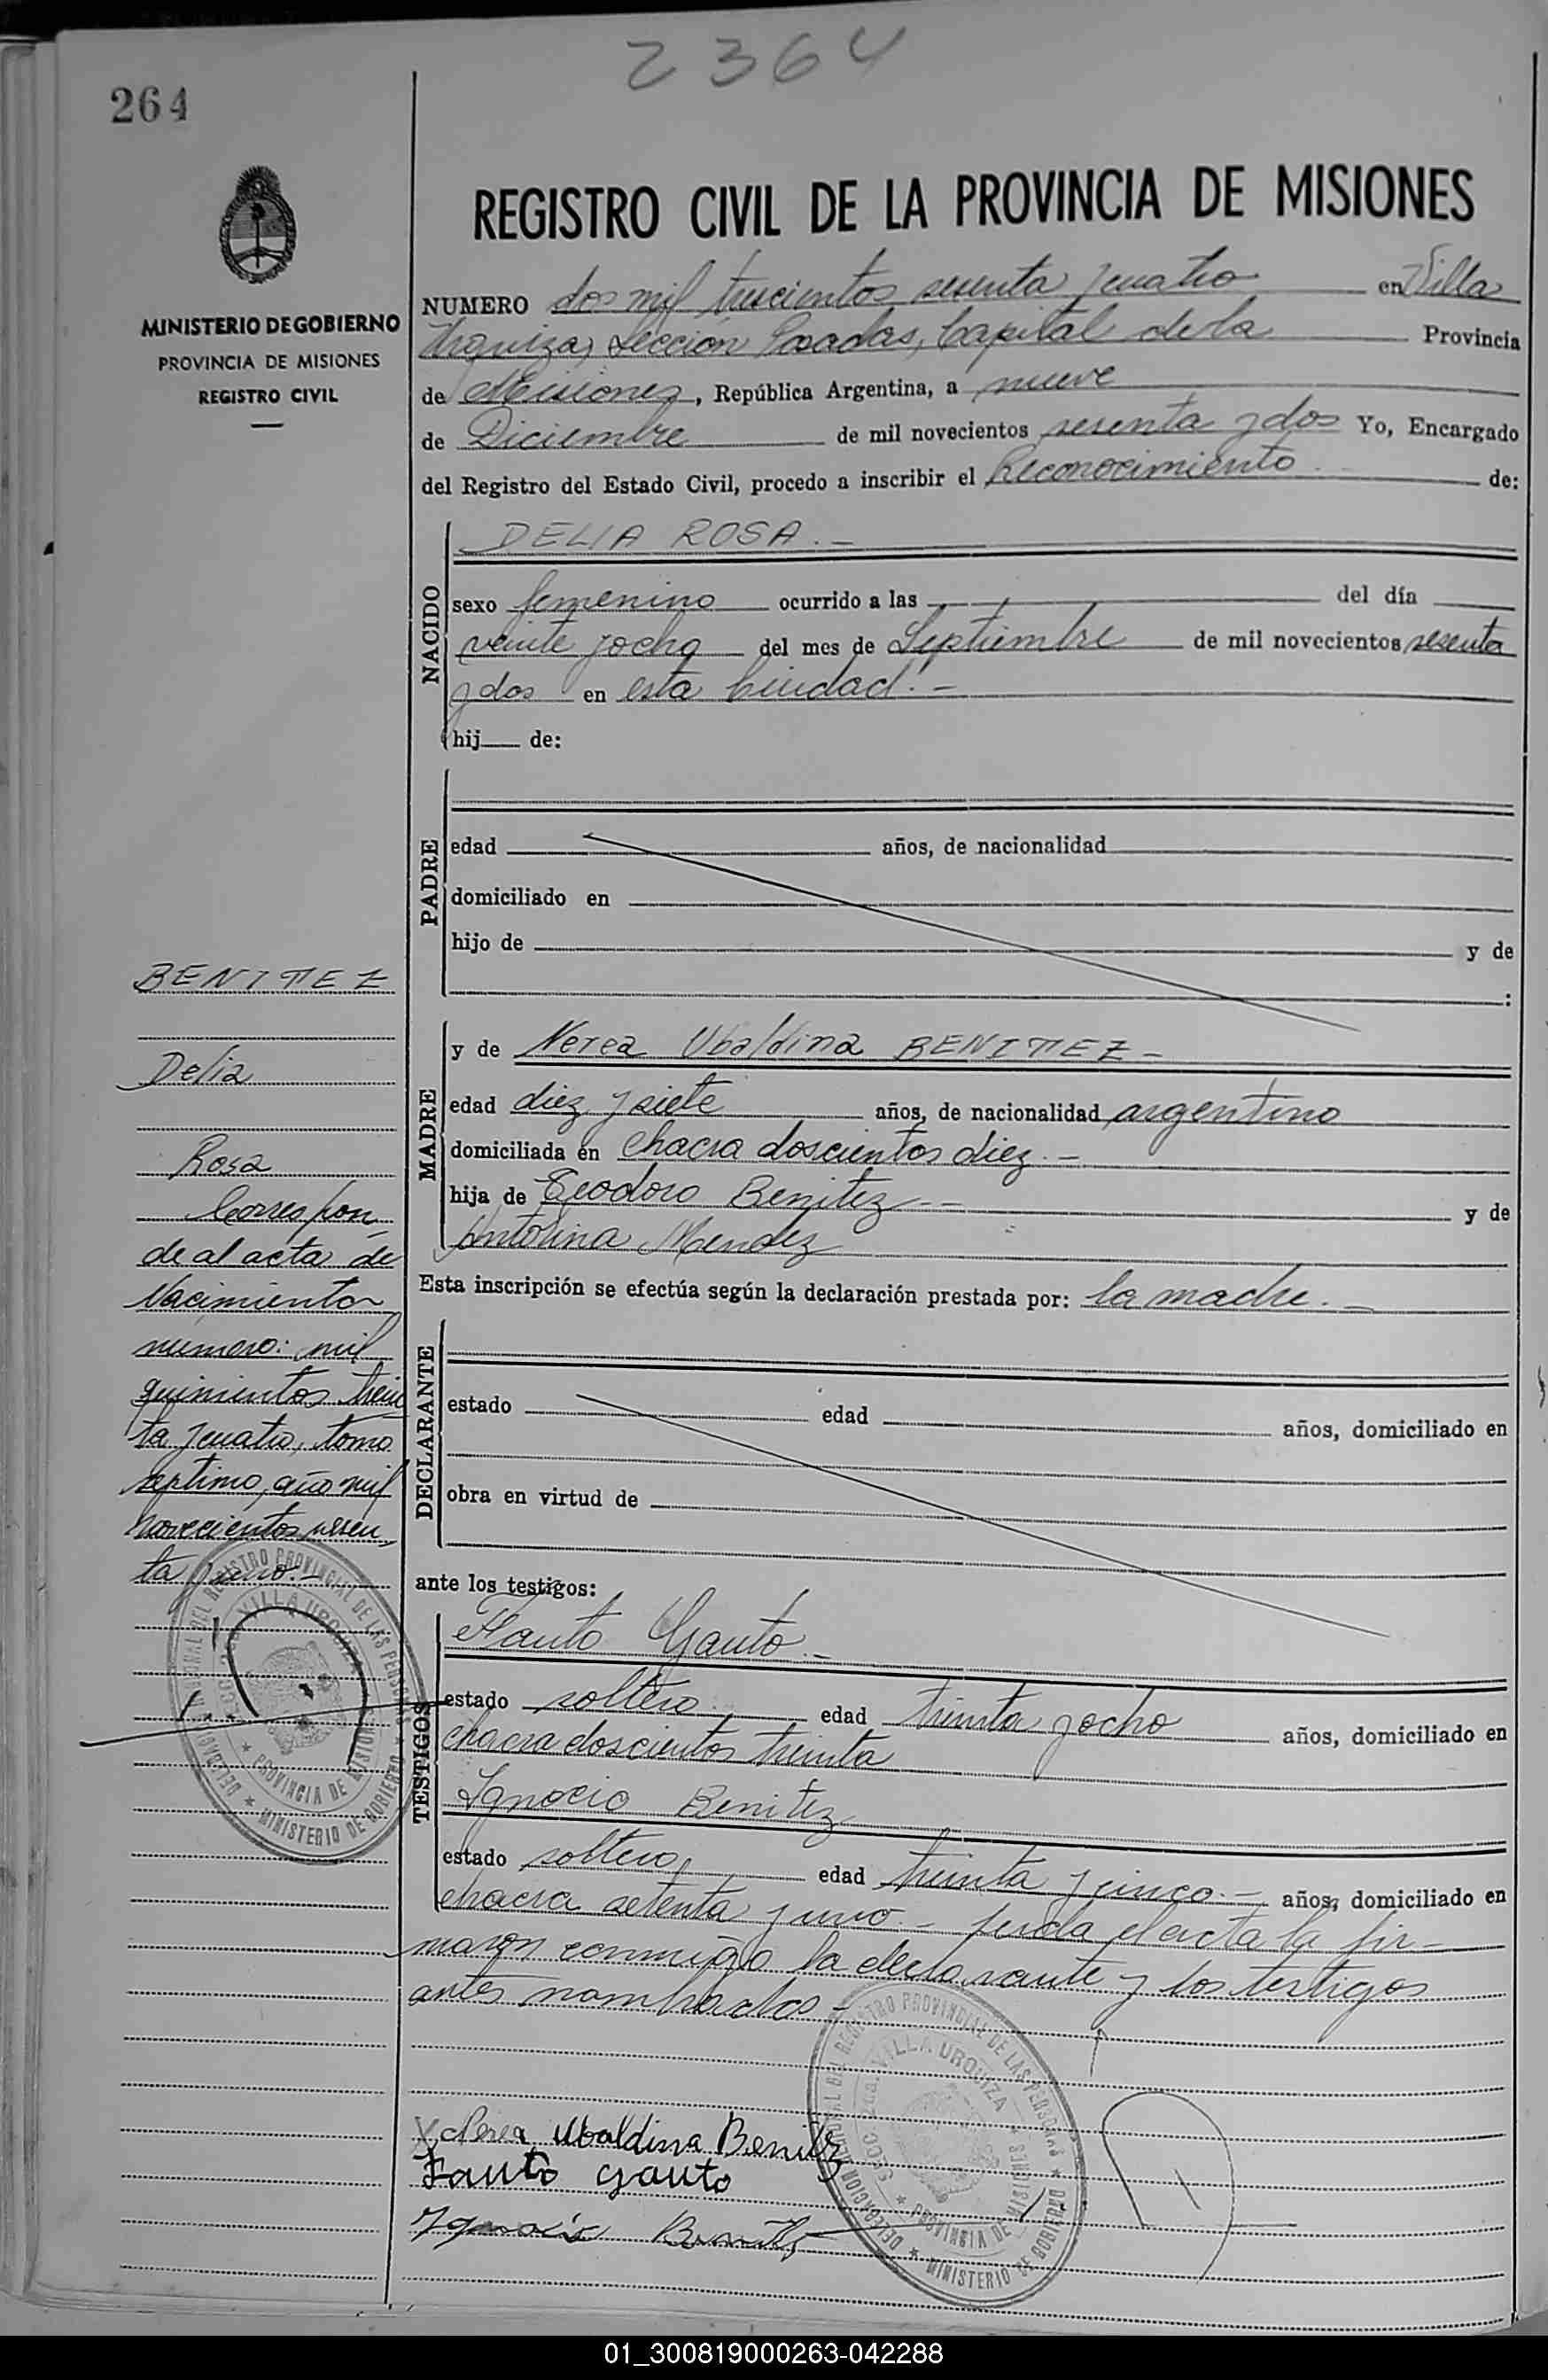 2364
264
REGISTRO CIVIL DE LA PROVINCIA DE MISIONES
MINISTERIO DE GOBIERNO
PROVINCIA DE MISIONES
REGISTRO CIVIL
NUMERO dos mil trescientos sesenta y cuatro en Villa
Urquiza, Sección Posadas, Capital de la Provincia
de Misiones, República Argentina, a nueve
de Diciembre de mil novecientos sesenta y dos Yo, Encargado
del Registro del Estado Civil, procedo a inscribir el Reconocimiento de:
NACIDO
DELIA ROSA.-
sexo femenino ocurrido a las del día
veinte y ocho del mes de Septiembre de mil novecientos sesenta
y dos en esta Ciudad.-
hij de:
PADRE
edad años, de nacionalidad
domiciliado en
hijo de y de
:
MADRE
y de Nerea Ubaldina BENITEZ-
edad diez y siete años, de nacionalidad argentino
domiciliada en chacra doscientos diez.-
hija de Teodoro Benitez.- y de
Antolina Mendez
Esta inscripción se efectúa según la declaración prestada por: la madre.-
DECLARANTE
estado edad años, domiciliado en
obra en virtud de
ante los testigos:
TESTIGOS
Fauto Gauto.-
estado soltero edad treinta y ocho años, domiciliado en
chacra doscientos treinta
Ignacio Benitez
estado soltero, edad treinta y cinco.- años, domiciliado en
chacra setenta y uno.- Leida el acta la fir-
maron conmigo la declarante y los testigos
antes nombrados-
BENITEZ
Delia
Rosa
Correspon
de al acta de
Nacimiento
número: mil
quinientos trein
ta y cuatro, tomo
septimo, año mil
novecientos sesen
ta y uno.-
DELEGACION REGIONAL DEL REGISTRO PROVINCIAL DE LAS PERSONAS
SECC. 2da. VILLA URQUIZA
PROVINCIA DE MISIONES
MINISTERIO DE GOBIERNO
X Nerea Ubaldina Benitez
Fauto Gauto
Ignacio Benitez
DELEGACION REGIONAL DEL REGISTRO PROVINCIAL DE LAS PERSONAS
SECC. 2da. VILLA URQUIZA
PROVINCIA DE MISIONES
MINISTERIO DE GOBIERNO
01_300819000263-042288